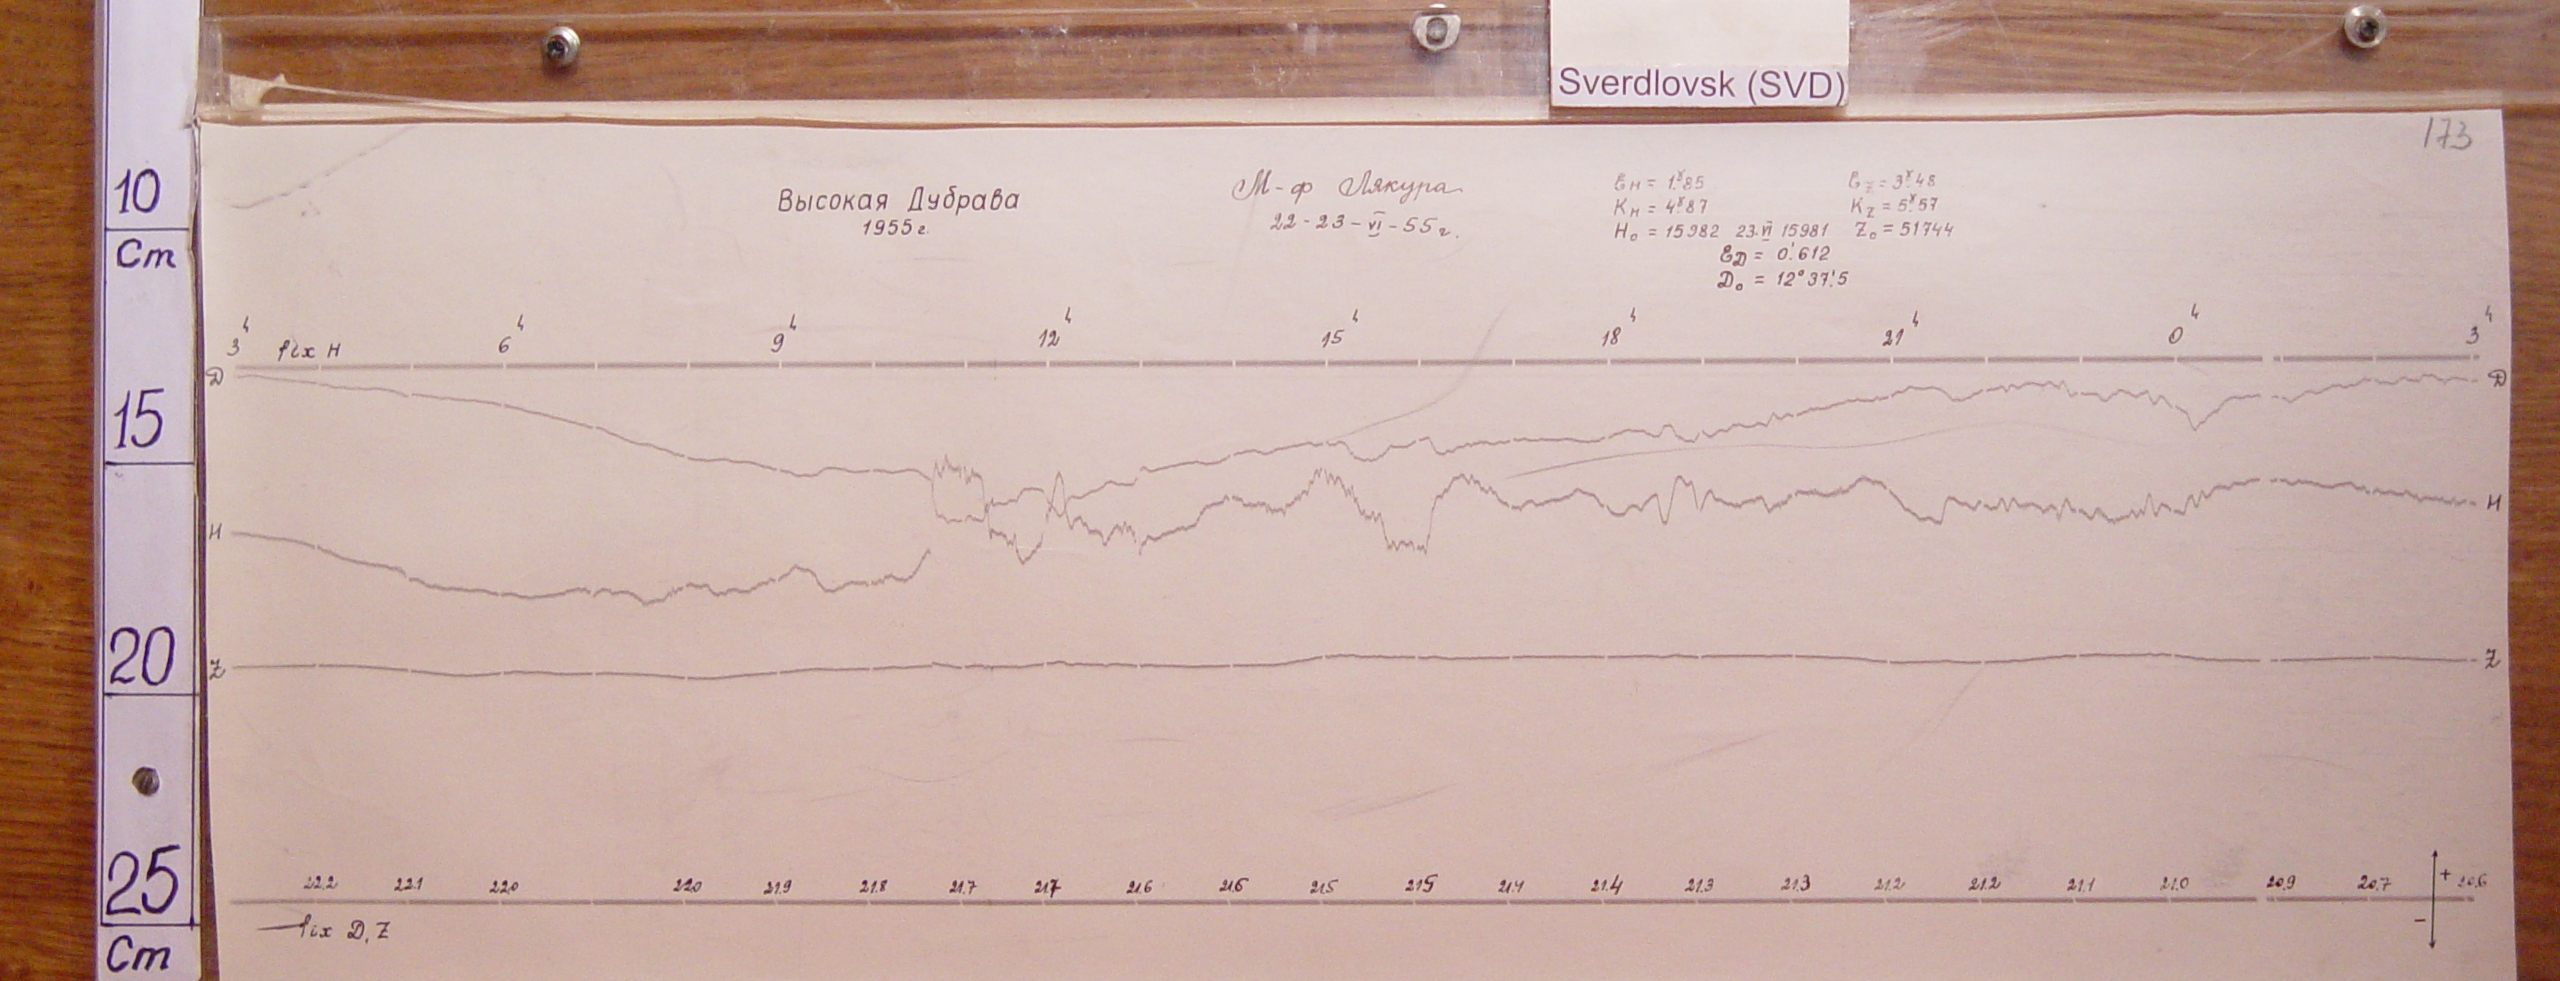 Sverdlovsk (SVD)
173
10
Cm
15
20
25
Cm
Высокая Дубрава
1955 г.
М-ф Лякура
22-23-VI-55 г.
εH = 1.ˠ85
KH = 4.ˠ87
H₀ = 15982 23.VI 15981
εZ = 3.ˠ48
KZ = 5.ˠ57
Z₀ = 51744
εD = 0.'612
D₀ = 12°37.'5
3ʰ fix H 6ʰ 9ʰ 12ʰ 15ʰ 18ʰ 21ʰ 0ʰ 3ʰ
D D
H H
Z Z
22.2 22.1 22.0 22.0 21.9 21.8 21.7 21.7 21.6 21.6 21.5 21.5 21.4 21.4 21.3 21.3 21.2 21.2 21.1 21.0 20.9 20.7 + 20.6
fix D, Z −